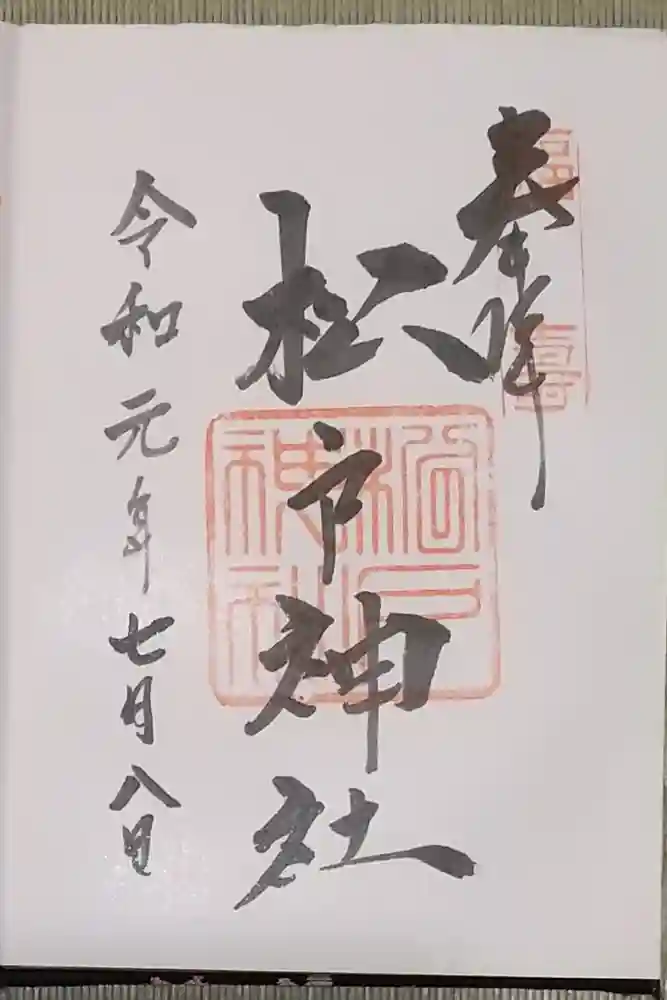 奉拝
松戸神社
令和元年七月八日
松戸
神社